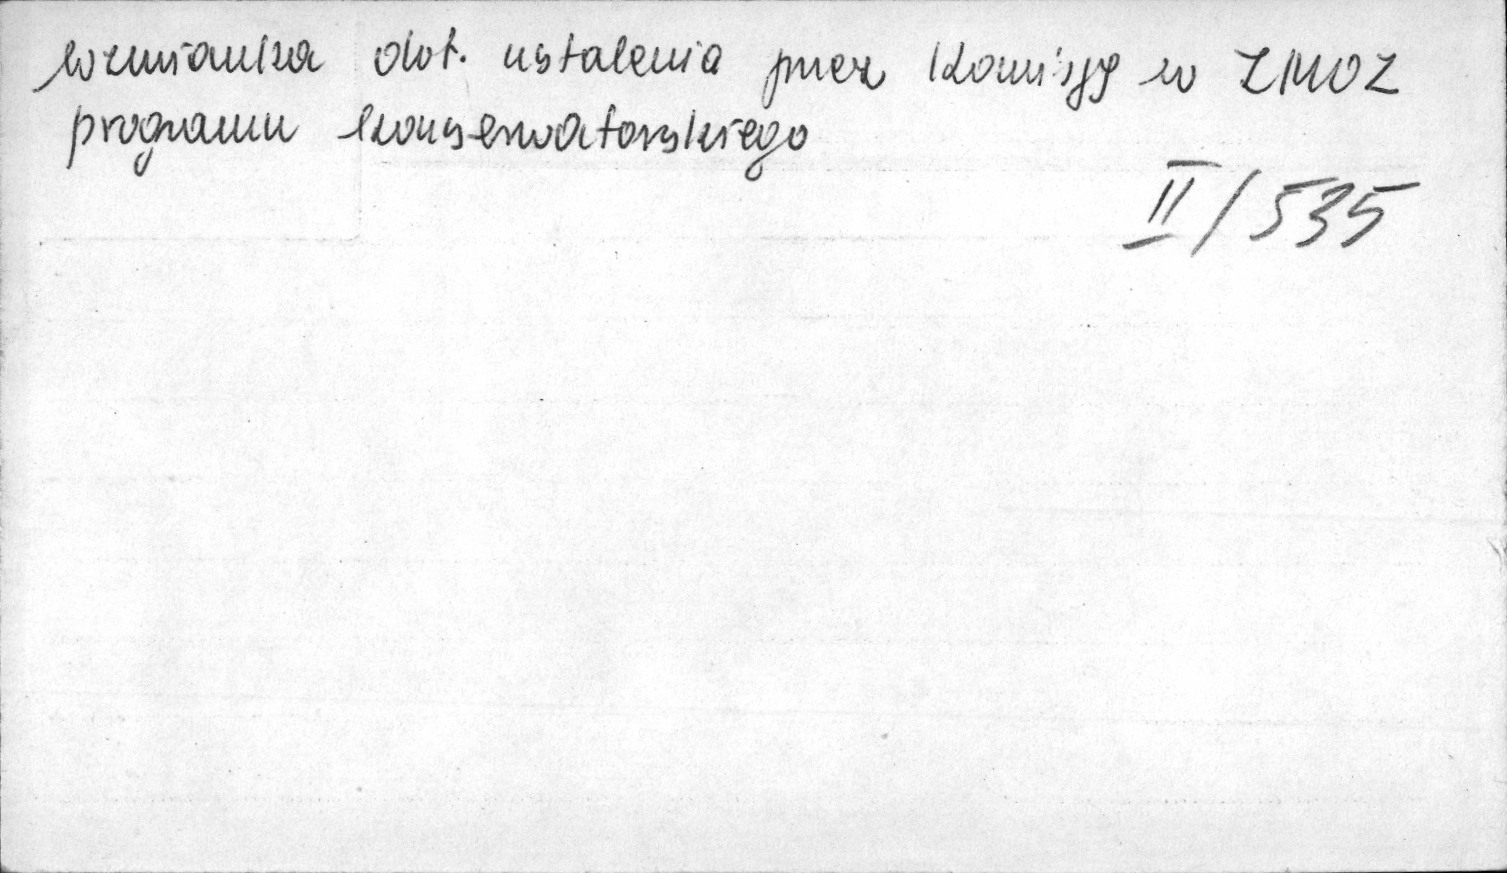 wzmianka dot. ustalenia przez Komisję w ZMOZ
programu konserwatorskiego
II/535